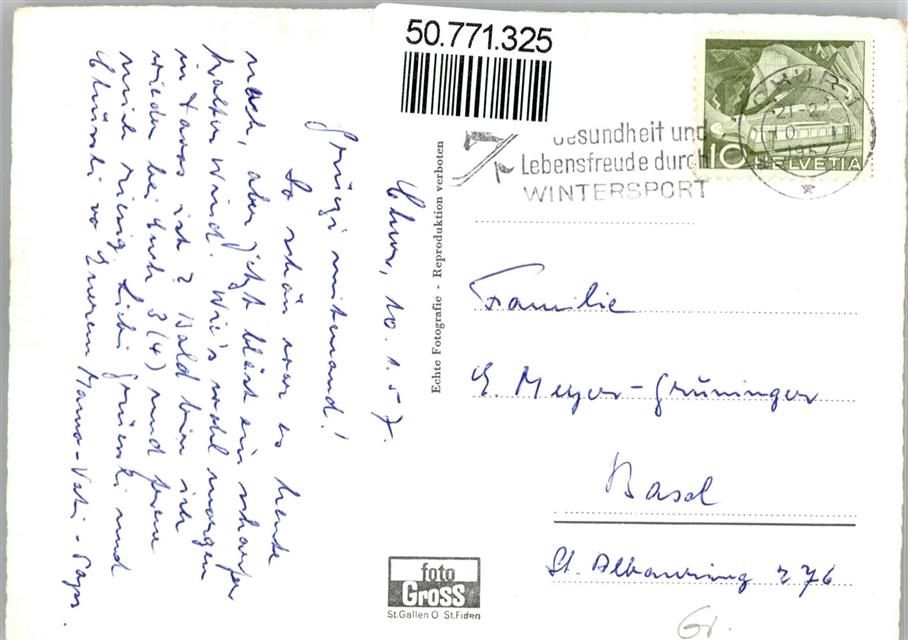 50.771.325
Chur, 10. 1. 57.
Grüezi mitenand!
So schön war es heute
noch, aber jetzt bläst ein scharfer
kalter Wind. Wie's wohl morgen
in Davos ist? Bald bin ich
wieder bei Euch 3 (4) und freue
mich riesig. Liebi Grüessli und
Chüssli vo Eurem Mama-Vati-
Echte Fotografie - Reproduktion verboten
Gesundheit und
Lebensfreude durch
WINTERSPORT
CHUR 1
1957
10 HELVETIA
Familie
E. Meyer-Grüninger
Basel
St. Albanring 276
foto
Gross
St.Gallen O St.Fiden
Gr.